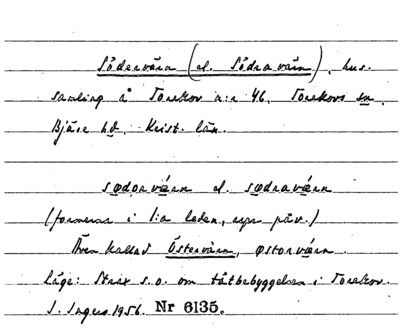 Södervärn (el. Södra värn), hus-
samling å Torekov n:r 46, Torekovs sn,
Bjäre hd. Krist. län.
sødorværn el. sødraværn
(formerna i 1:a leden, upv. påv.)
Även kallad Östervärn, østorværn.
Läge: Strax s.o. om tätbebyggelsen i Torekov.
I. Ingers 1956. Nr 6135.